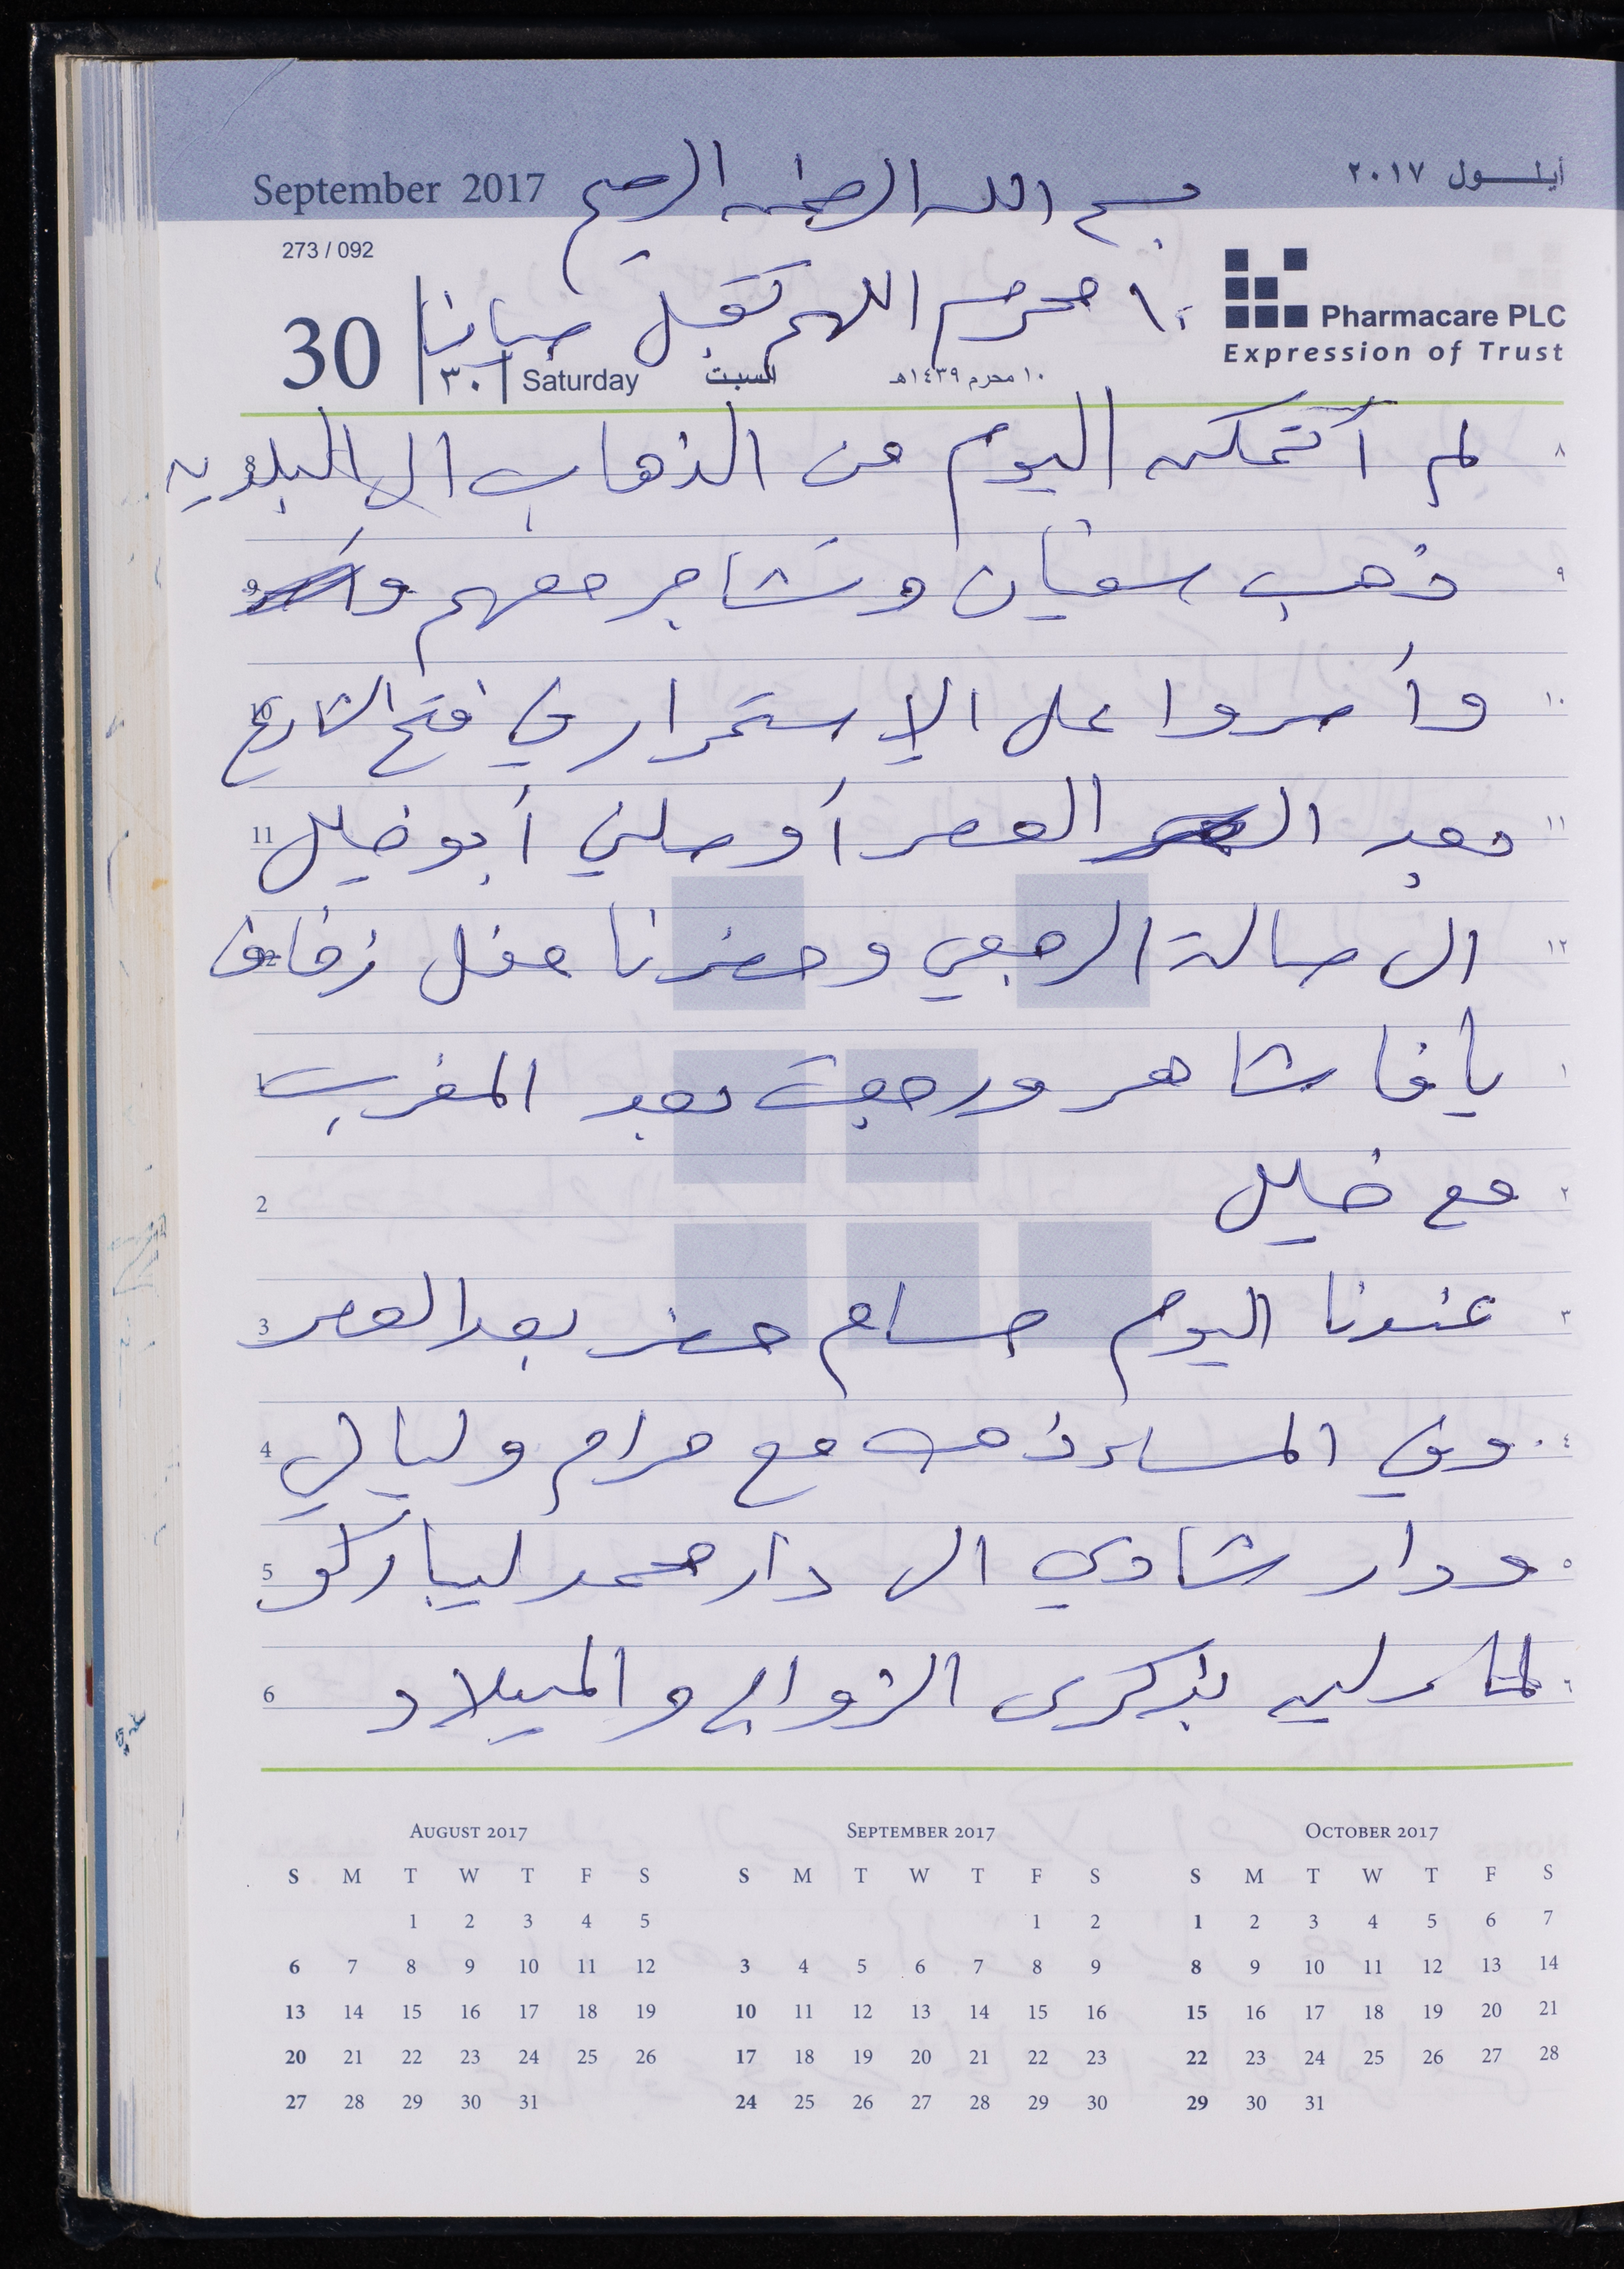 September 2017 بسم الله الرحمن الرحيم أيلـــول ٢٠١٧
273 / 092
١٠ محرم اللهم تقبل صيامنا
Pharmacare PLC
Expression of Trust
30 ٣٠ Saturday السبت ١٠ محرم ١٤٣٩هـ
٨ لم أتمكن اليوم من الذهاب الى البلديه
٩ ذهب سفيان وتشاجر معهم 9
١٠ وأصروا على الإستمرار في فتح الشارع 10
١١ بعد العصر أوصلني أبو خليل 11
١٢ الى صالة الرجبي وحضرنا حفل زفاف 12
١ يافا شاهر ورجعت بعد المغرب 1
٢ مع خليل 2
٣ عندنا اليوم حسام حضر بعد العصر 3
٤ وفي المساء ذهب مع مرام وليالي 4
٥ ودار شادي الى دار محمد ليباركو 5
٦ بذكرى الزواج والميلاد 6
AUGUST 2017 SEPTEMBER 2017 OCTOBER 2017
S M T W T F S S M T W T F S S M T W T F S
1 2 3 4 5 1 2 1 2 3 4 5 6 7
6 7 8 9 10 11 12 3 4 5 6 7 8 9 8 9 10 11 12 13 14
13 14 15 16 17 18 19 10 11 12 13 14 15 16 15 16 17 18 19 20 21
20 21 22 23 24 25 26 17 18 19 20 21 22 23 22 23 24 25 26 27 28
27 28 29 30 31 24 25 26 27 28 29 30 29 30 31